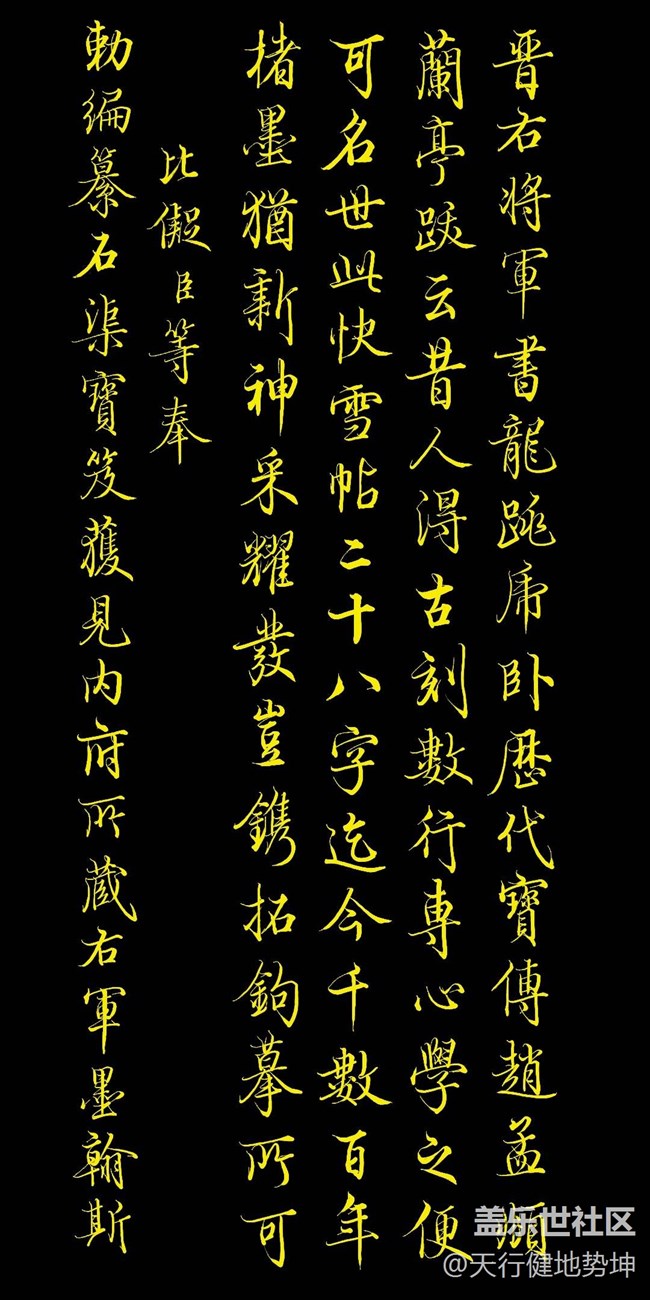 晋右将軍書龍跳虎卧歷代寶傳趙孟頫
蘭亭跋云昔人得古刻數行專心學之便
可名世此快雪帖二十八字迄今千數百年
楮墨猶新神采耀發豈鐫拓鉤摹所可
比儗臣等奉
勅編纂石渠寶笈獲見内府所蔵右軍墨翰斯
盖乐世社区
@天行健地势坤